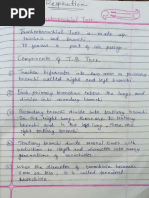 Respiration
Tracheobronchial Tree
Tracheobronchial Tree is made up
trachea and bronchi.
It forms a part of air passage.
Components of T.B. Tree.
Trachea bifurcates into two main or primary
bronchi called right and left bronchi
Each primary bronchus enters the lungs and
divides into secondary bronchi
Secondary bronchi divide into tertiary bronchi.
In the right lung, there are 10 tertiary
bronchi and in left lung there are
eight tertiary bronchi.
Tertiary bronchi divide several times with
reduction in length and diameter into many
generations of bronchioles.
When the diameter of bronchiole becomes
1 mm or less, it is called terminal
bronchiole.